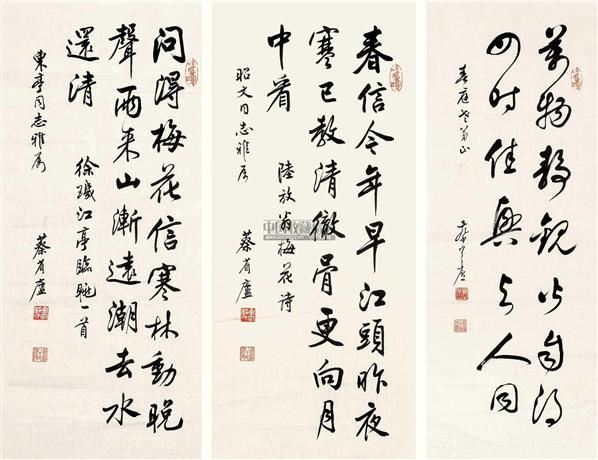 萬物靜觀皆自得
四时佳興与人同
春庭老弟正
蔡省廬
春信今年早江頭昨夜
寒已教清徹骨更向月
中看
陸放翁梅花詩
昭文同志雅属
蔡省廬
问得梅花信寒林動晚
聲雨来山漸遠潮去水
還清
徐璣江亭臨眺一首
東亭同志雅属
蔡省廬